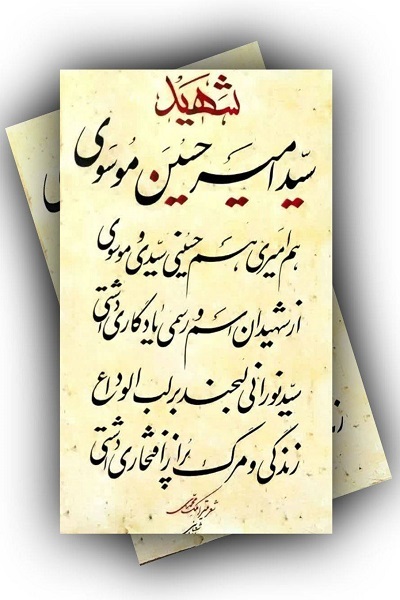 شهید
سیّد امیر حسین موسوی
هم امیری هم حسینی سیّدی و موسوی
از شهیدان اسم و رسمی یادگاری داشتی
سیّد نورانی لبخند بر لب الوداع
زندگی و مرگ پر از افتخاری داشتی
شعر